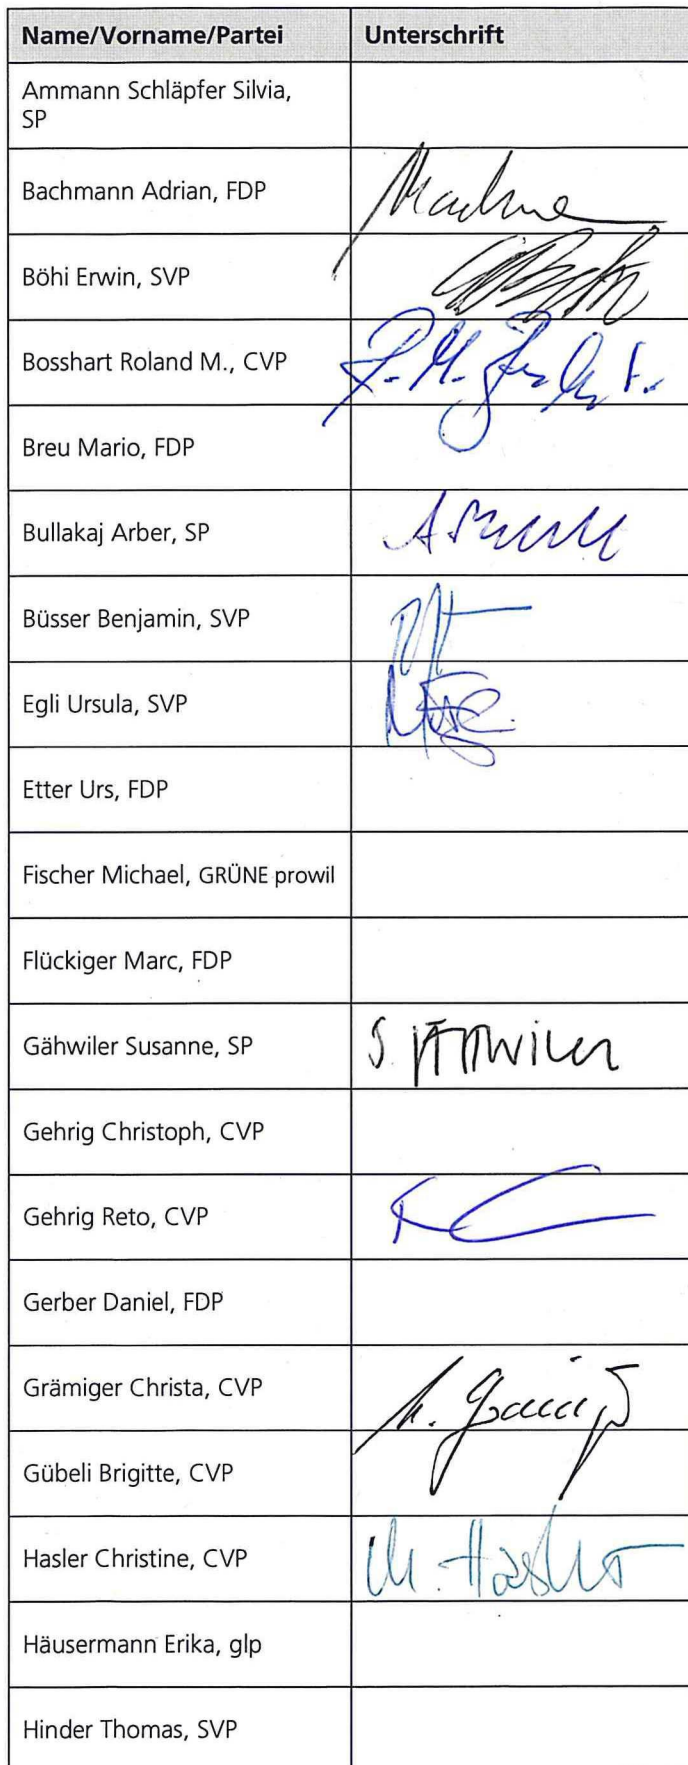 Name/Vorname/Partei Unterschrift
Ammann Schläpfer Silvia,
SP
Bachmann Adrian, FDP
Böhi Erwin, SVP
Bosshart Roland M., CVP
Breu Mario, FDP
Bullakaj Arber, SP
Büsser Benjamin, SVP
Egli Ursula, SVP
Etter Urs, FDP
Fischer Michael, GRÜNE prowil
Flückiger Marc, FDP
Gähwiler Susanne, SP
Gehrig Christoph, CVP
Gehrig Reto, CVP
Gerber Daniel, FDP
Grämiger Christa, CVP
Gübeli Brigitte, CVP
Hasler Christine, CVP
Häusermann Erika, glp
Hinder Thomas, SVP